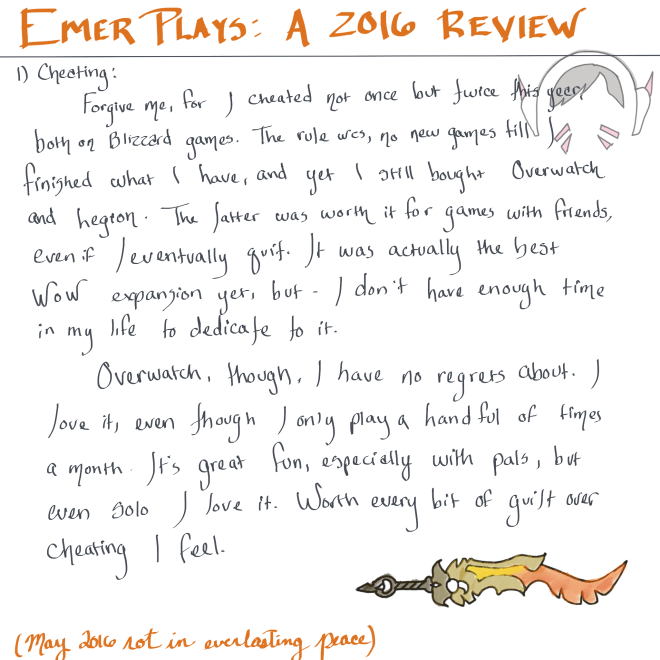 EMER PLAYS: A 2016 REVIEW
1) Cheating:
Forgive me, for I cheated not once but twice this year,
both on Blizzard games. The rule was, no new games till I
finished what I have, and yet I still bought Overwatch
and hegion. The latter was worth it for games with friends,
even if I eventually quit. It was actually the best
WoW expansion yet, but - I don't have enough time
in my life to dedicate to it.
Overwatch, though, I have no regrets about. I
love it, even though I only play a handful of times
a month. It's great fun, especially with pals, but
even solo I love it. Worth every bit of guilt over
cheating I feel.
(May 2016 rot in everlasting peace)